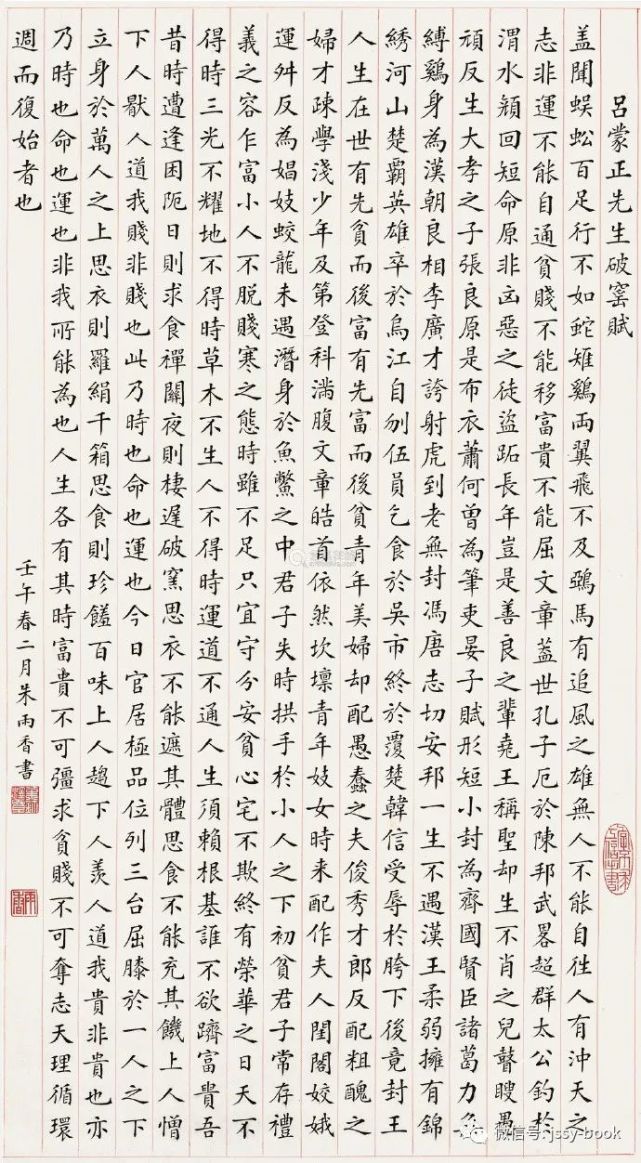 呂蒙正先生破窑賦
盖聞蜈蚣百足行不如蛇雉鷄両翼飛不及鵶馬有追風之雄無人不能自徃人有沖天之
志非運不能自通貧賤不能移富貴不能屈文章蓋世孔子厄於陳邦武畧超群太公釣於
渭水顔回短命原非凶惡之徒盜跖長年豈是善良之輩堯王稱聖却生不肖之兒瞽瞍愚
頑反生大孝之子張良原是布衣蕭何曾為筆吏晏子賦形短小封為齊國賢臣諸葛力無
縛鷄身為漢朝良相李廣才誇射虎到老無封馮唐志切安邦一生不遇漢王柔弱擁有錦
綉河山楚霸英雄卒於烏江自刎伍員乞食於吳市終於覆楚韓信受辱於胯下後竟封王
人生在世有先貧而後富有先富而後貧青年美婦却配愚蠢之夫俊秀才郎反配粗醜之
婦才疎學淺少年及第登科滿腹文章皓首依然坎壈青年妓女時来配作夫人閨閣姣娥
運舛反為娼妓蛟龍未遇潛身於魚鱉之中君子失時拱手於小人之下初貧君子常存禮
義之容乍富小人不脱賤寒之態時雖不足只宜守分安貧心宅不欺終有榮華之日天不
得時三光不耀地不得時草木不生人不得時運道不通人生須賴根基誰不欲躋富貴吾
昔時遭逢困阨日則求食禪關夜則棲遲破窯思衣不能遮其體思食不能充其饑上人憎
下人厭人道我賤非賤也此乃時也命也運也今日官居極品位列三台屈膝於一人之下
立身於萬人之上思衣則羅絹千箱思食則珍饈百味上人趨下人羨人道我貴非貴也亦
乃時也命也運也非我所能為也人生各有其時富貴不可彊求貧賤不可奪志天理循環
週而復始者也
壬午春二月朱雨香書
微信号:jssy-book